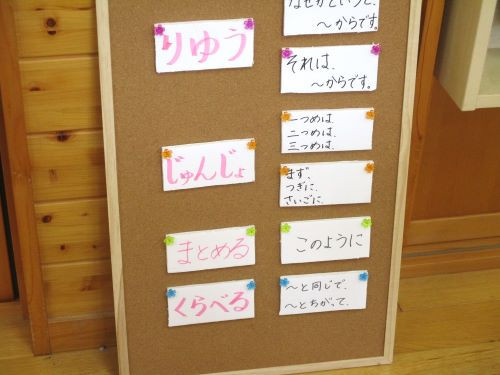 りゆう
なぜかというと、
～からです。
それは、
～からです。
じゅんじょ
一つめは、
二つめは、
三つめは、
まず、
つぎに、
さいごに、
まとめる
このように
くらべる
～と同じで、
～とちがって、